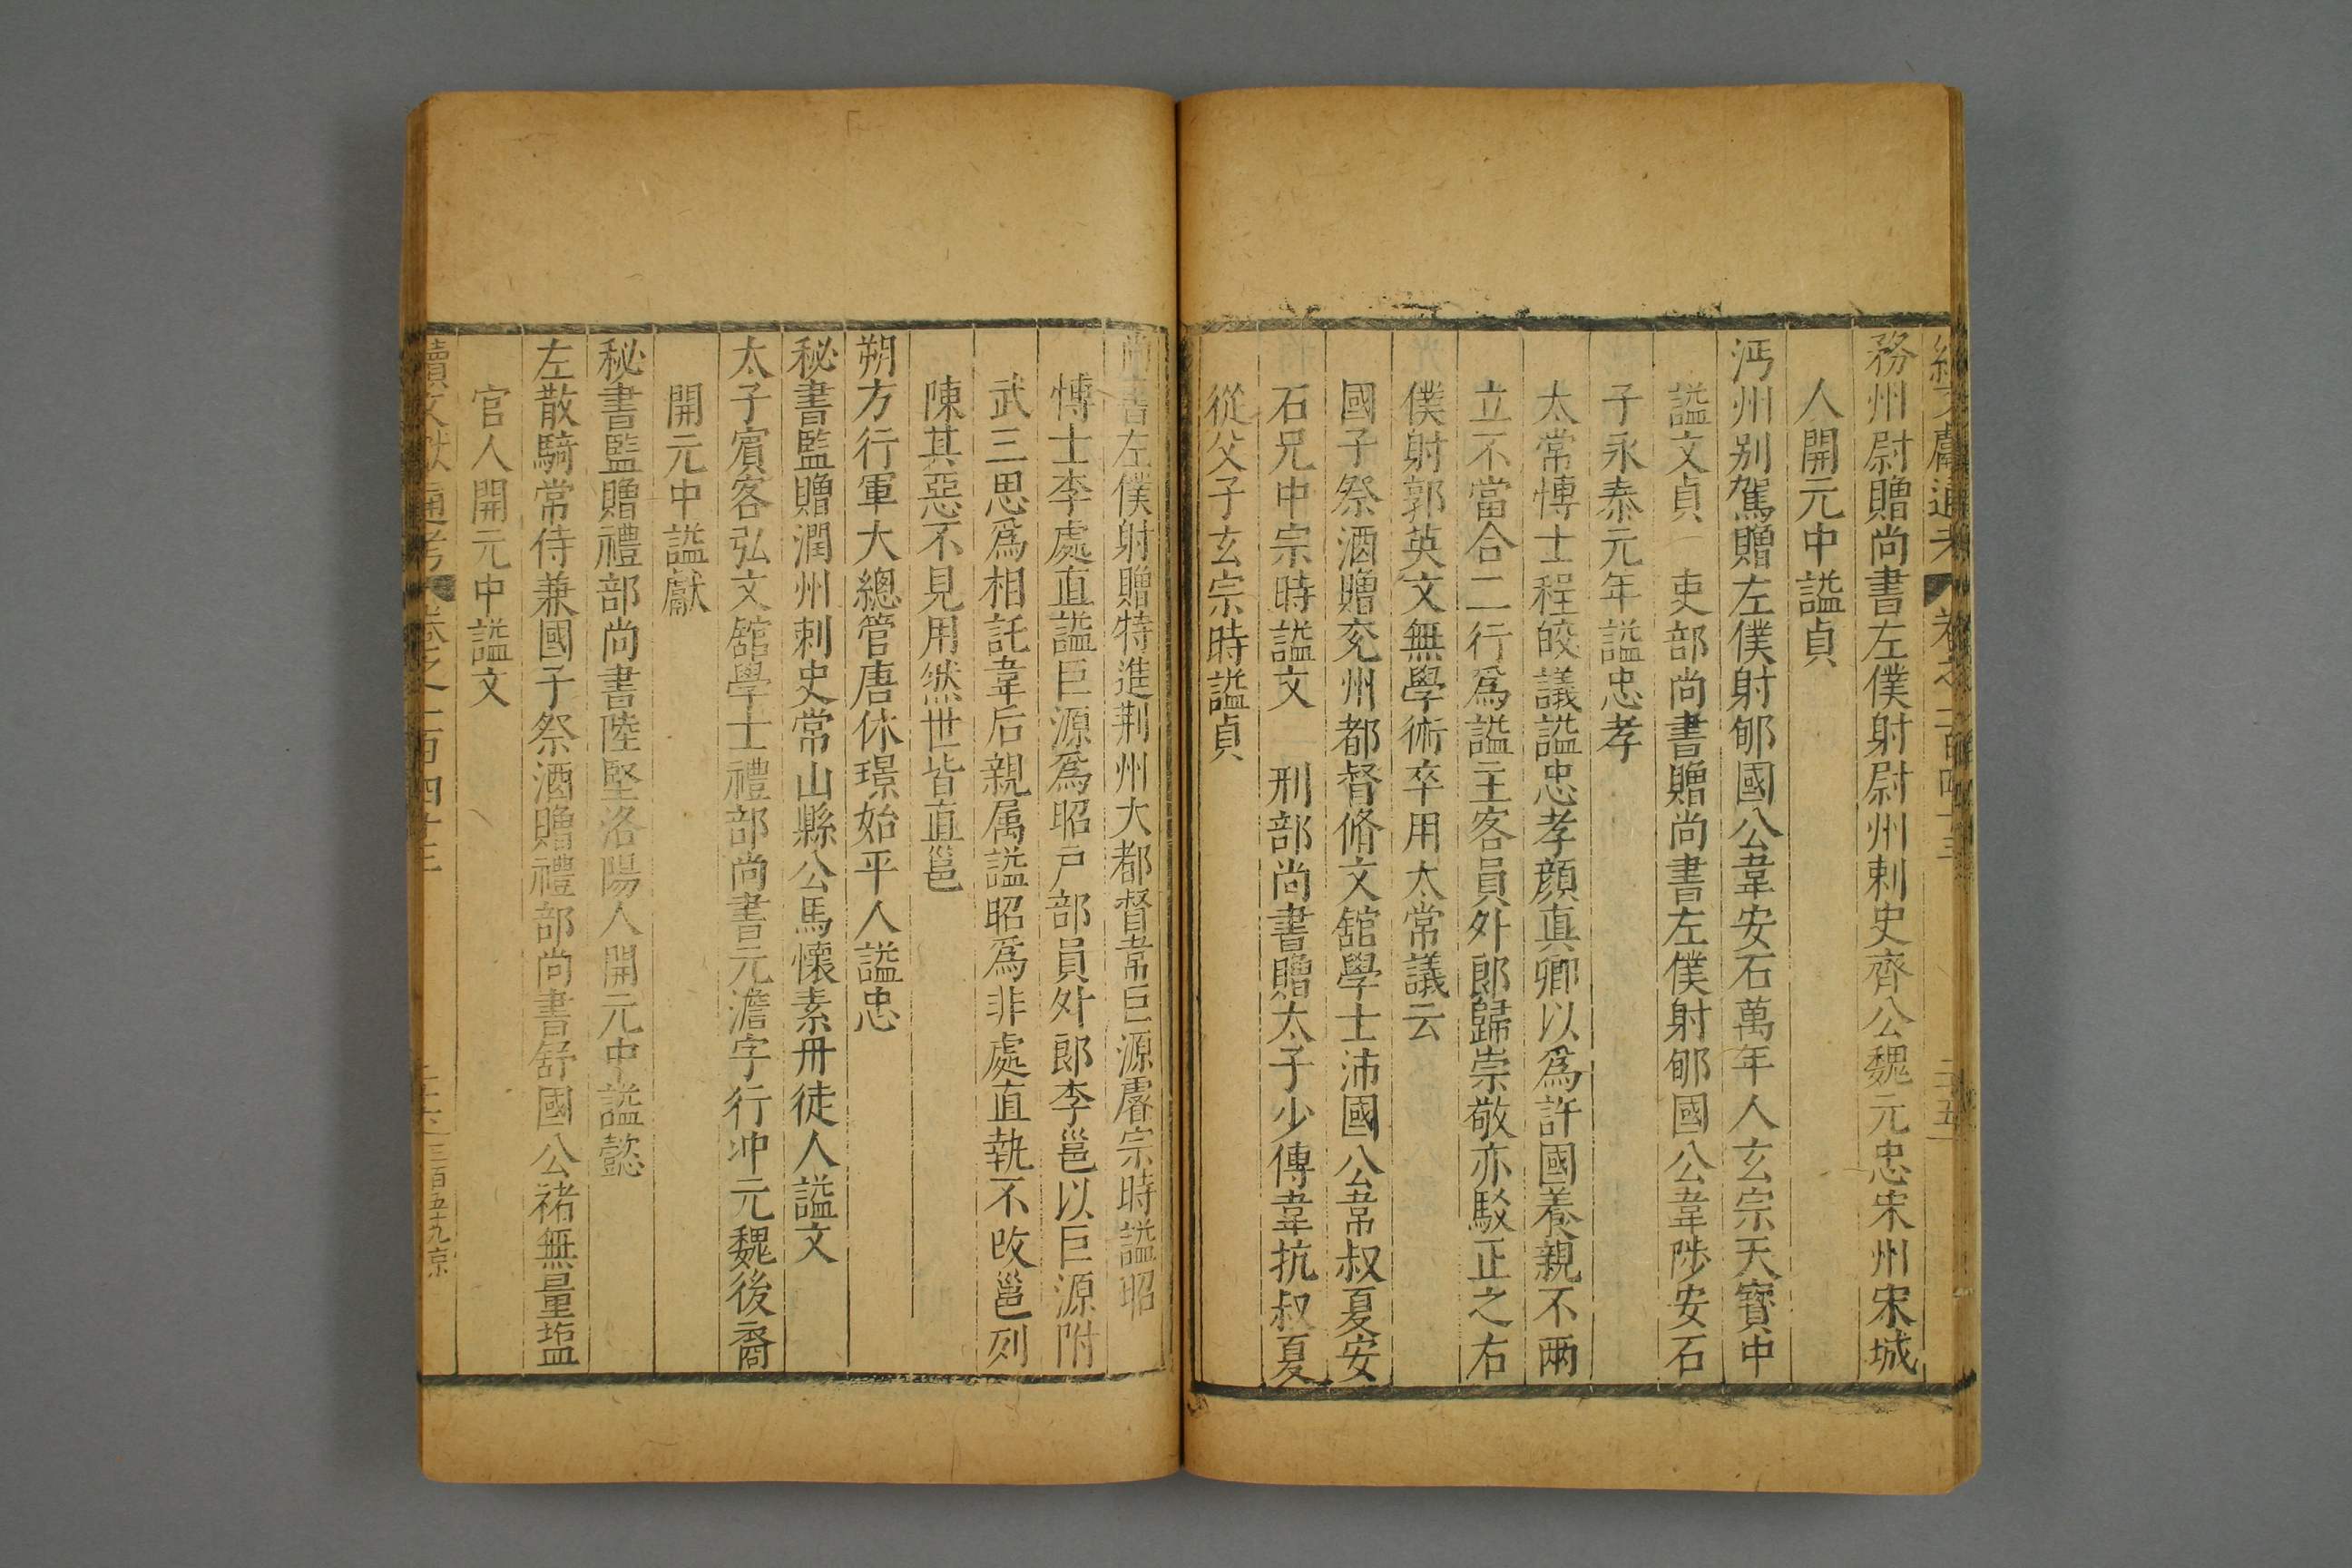 務州尉贈尚書左僕射尉州刺史齊公魏元忠宋州宋城
人開元中謚貞
沔州别駕贈左僕射郇國公韋安石萬年人玄宗天寶中
謚文貞 吏部尚書贈尚書左僕射郇國公韋陟安石
子永泰元年謚忠孝
太常愽士程皎議謚忠孝顔真卿以爲許國養親不兩
立不當合二行爲謚主客員外郎歸崇敬亦駁正之右
僕射郭英文無學術卒用太常議云
國子祭酒贈兖州都督脩文舘學士沛國公韋叔夏安
石兄中宗時謚文 刑部尚書贈太子少傅韋抗叔夏
從父子玄宗時謚貞
尚書左僕射贈特進荆州大都督韋巨源睿宗時謚昭
愽士李處直謚巨源爲昭户部員外郎李邕以巨源附
武三思爲相託韋后親属謚昭爲非處直執不改邕列
陳其惡不見用然世皆直邕
朔方行軍大總管唐休璟始平人謚忠
秘書監贈潤州刺史常山縣公馬懷素丹徒人謚文
太子賔客弘文舘學士禮部尚書元澹字行冲元魏後裔
開元中謚獻
秘書監贈禮部尚書陸堅洛陽人開元中謚懿
左散騎常侍兼國子祭酒贈禮部尚書舒國公禇無量塩
官人開元中謚文
續文獻通考 卷之二百四十三 二十六 三百五十九京